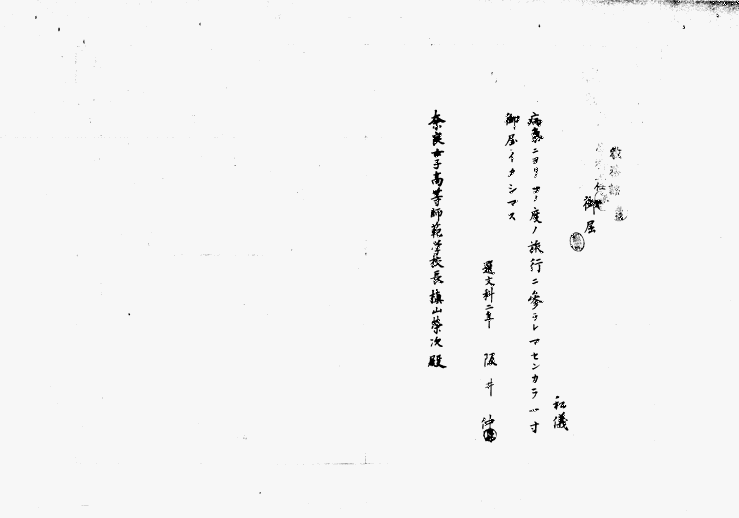 御届
私儀
病気ニヨリコノ度ノ旅行ニ参ラレマセンカラ一寸
御届イタシマス
選文科二年 阪井仲
奈良女子高等師範学校長槙山榮次殿